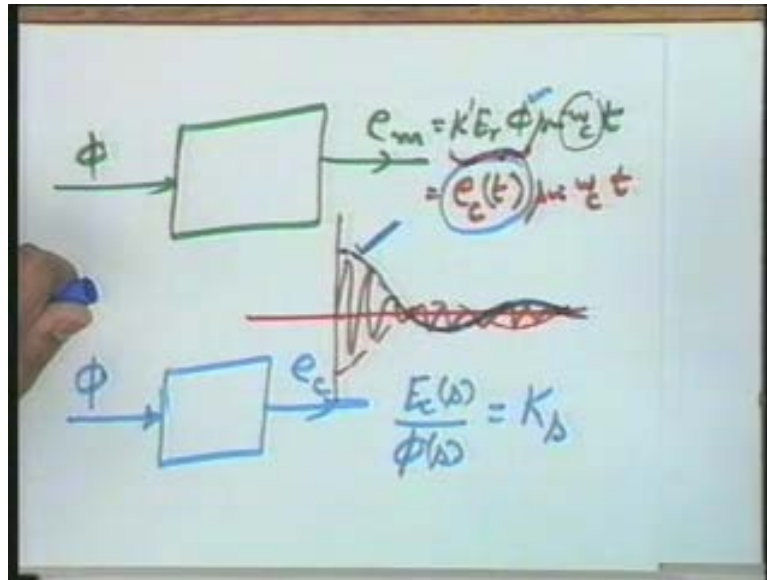 ϕ
e_m = K'E_r ϕ sin ω_c t
= e_c(t) sin ω_c t
ϕ
e_c
E_c(s)/ϕ(s) = K_s